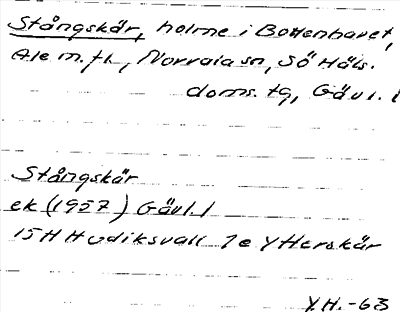 Stångskär, holme i Bottenhavet,
Ale m.fl., Norrala sn, Sö Häls.
doms. tg, Gävl. l
Stångskär
ek (1957) Gävl. l
15H Hudiksvall 1e Ytterskär
Y.H.-63